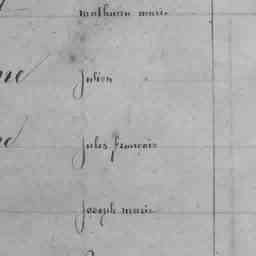 mathurin marie
julien
jules françois
joseph marie